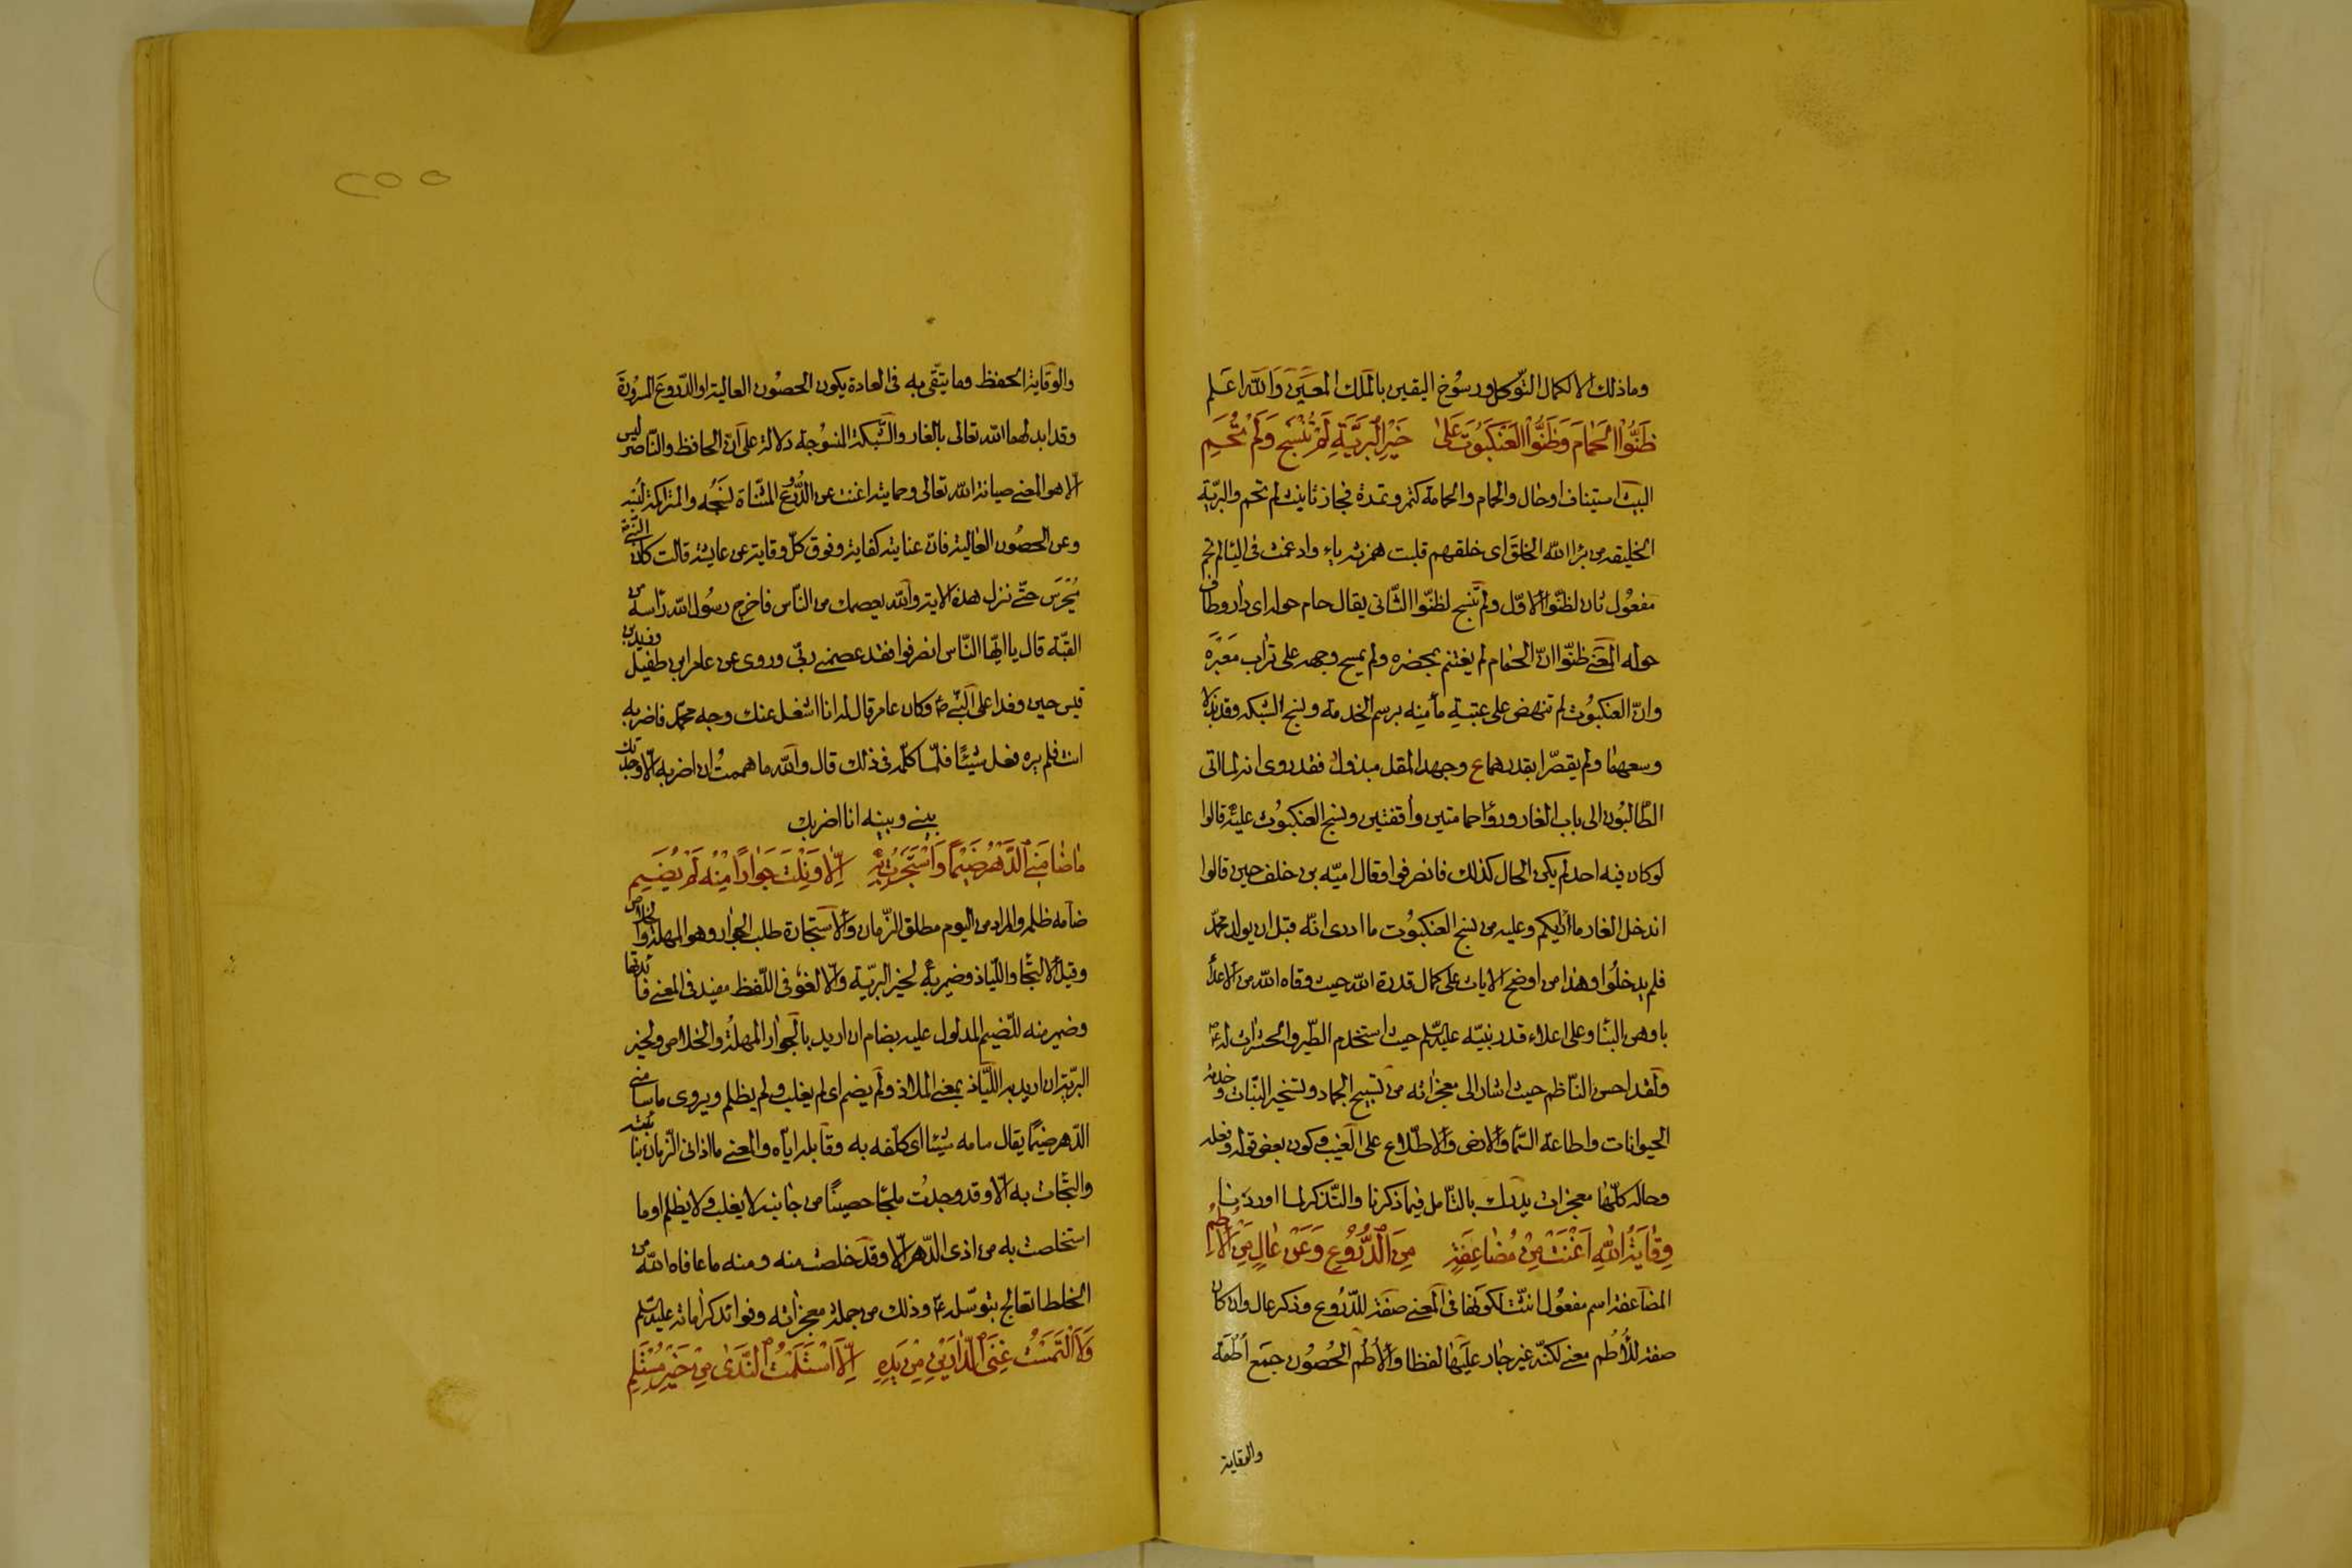 وما ذلك الا لكمال التّوكل ورسوخ اليقين بالملك المعين والله اعلم
ظَنُّوا الْحَمَامَ وَظَنُّوا الْعَنْكَبُوتَ عَلىٰ خَيْرِ الْبَرِيَّةِ لَمْ تَنْسُجْ وَلَمْ تَحُمِ
البيت استيناف او حال والحمام والحمامة كتمر وتمرة فجاز تانيث لم تحم والبريّة
الخليقة من برا الله الخلق اى خلقهم قلبت همزته ياء وادغمت فى اليا لم تحم
مفعول ثان لظنّوا الاوّل ولم تنسج لظنّوا الثّانى يقال حام حوله اى دار وطاف
حوله المعنى ظنّوا انّ الحمام لم يغتنم بحضره ولم يمسح وجهه على تراب معبره
وانّ العنكبوت لم تنهض على عتبة مأمنه برسم الخدمة ولنسج الشبكه وقد بذلا
وسعهما ولم يقصّرا بقدرهما ع وجهد المقل مبذول فقد روى انه لما اتى
الطّالبون الى باب الغار وروا حمامتين واقفتين ونسج العنكبوت عليه قالوا
لو كان فيه احد لم يكن الحال كذلك فانصرفوا فقال اميّه بن خلف حين قالوا
اندخل الغار ما وعليه من نسج العنكبوت ما ادرى انّه قبل ان يولد محمّد
فلم يدخلوا وهذا من اوضح الايات على كمال قدرة الله حيث وقاه الله من الاعدا
باوهن البنا وعلى اعلاء قدر نبيّه عليه السلم حيث استخدم الطّير والحشرات له
ولقد احسن النّاظم حيث اشار الى معجزاته من تسبيح الجماد وتسخير النّبات وخدمة
الحيوانات واطاعة السّما والارض والاطّلاع على الغيب فكون بعض قوله وفعله
وحاله كلّها معجزات يدرك بالتّامل فيما ذكرنا والتّذكر لما اوردنا
وِقَايَةُ اللّٰهِ اَغْنَتْ مِنْ مُضَاعَفَةٍ مِنَ الدُّرُوعِ وَعَنْ عَالٍ مِنَ الْاُطُمِ
المضاعفة اسم مفعول انثت لكونها فى المعنى صفة للدّروع وذكر عال وان كان
صفة للاُطُم معنى لكنّه غير جار عليها لفظا والاُطُم الحصون جمع اُطُمة
والوقاية
٢٥٥
والوقاية الحفظ وما يتّقى به فى العادة يكون الحصون العالية او الدّروع المسرودة
وقد ابدلهما الله تعالى بالغار والشّبكة المنسوجة دلالة على انّ الحافظ والنّاصر ليس
الّا هو المعنى صيانة الله تعالى وحمايته اغنت عن الدّروع المثنّاة نسجه والمتراكمة
وعن الحصون العالية فان عنايته كفاية وفوق كلّ وقاية عن عايشة قالت كان النّبى
يُحرَس حتّى نزل هذه الاية والله يعصمك من النّاس فاخرج رسول الله راسه من
القبّة قال يا ايّها النّاس انصرفوا فقد عصمنى ربّى وروى عن عامر ابن طفيل
قيس حين وفدا على النّبى وكان عامر قال له انا اشغل عنك وجه محمّد فاضربه
انت فلم يره فعل شيئًا فلمّا كلّمه فى ذلك قال والله ما هممت ان اضربه الّا وجدتك
بينى وبينه انا اضربك
مَا ضَامَنِى الدَّهْرُ ضَيْمًا وَاسْتَجَرْتُ بِهِ اِلَّا وَنِلْتُ جِوَارًا مِنْهُ لَمْ يُضَمِ
ضامه ظلمه والمراد من اليوم مطلق الزّمان والاستجارة طلب الجوار وهو المهلة والخلاص
وقيل الالتجا واللّياذ وضمير به لخير البريّة والّا لغو فى اللّفظ مفيد فى المعنى فائدتها
وضمير منه للضّيم المدلول عليه بضام ان اريد بالجوار المهلة والخلاص ولخير
البريّة ان اريد به اللّياذ بمعنى الملاذ ولم يضم اى لم يغلب ولم يظلم ويروى ما سامنى
الدّهر ضيمًا يقال سامه شيئا اى كلّفه به وقابله ايّاه والمعنى ما اذانى الزّمان
والتجأت به الّا وقد وجدت ملجئًا حصينًا من جانبه لا يغلب ولا يظلم او ما
استخلصت به من اذى الدّهر الّا وقد خلصت منه ومنه ما عافاه الله من
الخلط بتوسّله وذلك من جملة معجزاته وفوائد كراماته عليه السلم
وَلَا الْتَمَسْتُ غِنَى الدَّارَيْنِ مِنْ يَدِهِ اِلَّا اسْتَلَمْتُ النَّدَىٰ مِنْ خَيْرِ مُسْتَلَمِ